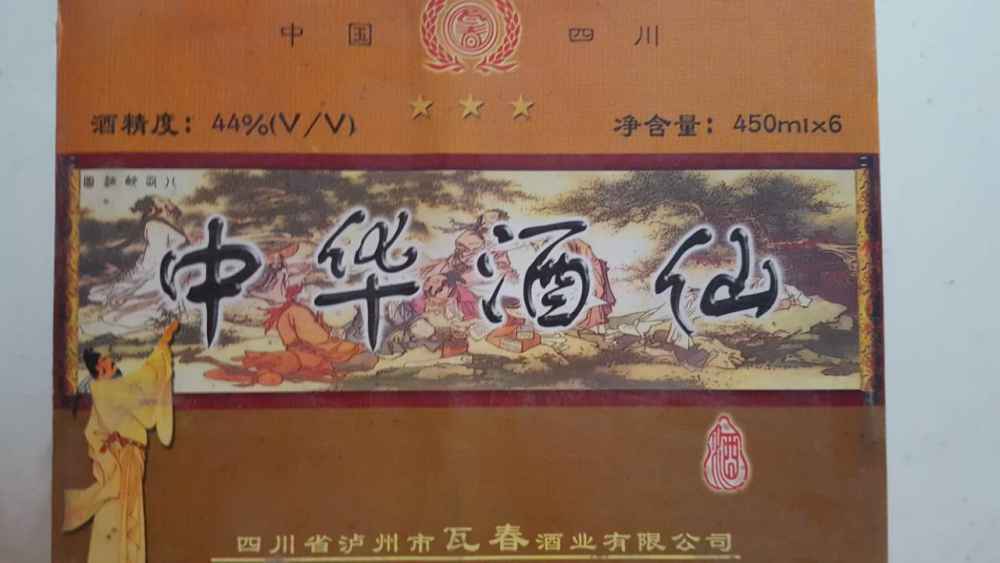 中国 四川
酒精度：44%(V/V) 净含量：450ml×6
中华酒仙
酒
四川省泸州市瓦春酒业有限公司